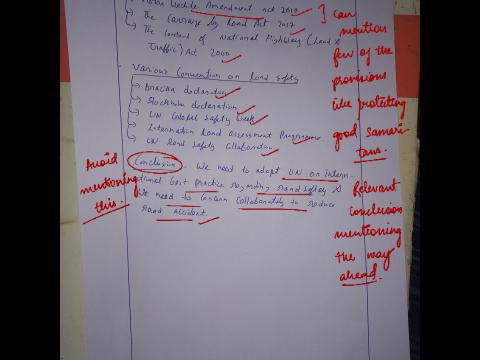 Vechile Amendment act 2019
→ The Carriage by Road Act 2007
→ The Control of National Highway (Land &
Traffic) Act 2000
] can
mention
few of the
provisions
like protecting
good samari
tans.
Various Convention on Road Safety
→ Brazilia declaration
→ Stockholm declaration
→ UN Global Safety Week
→ Internation Road Assessment Programme
→ UN Road Safety Collaboration
Conclusion - We need to adopt UN on Intern-
ational best practice regarding Road Safety &
We need to Concern Collaborately to reduce
Road accident.
Avoid
mentioning
this.
Relevant
conclusion
mentioning
the way
ahead.